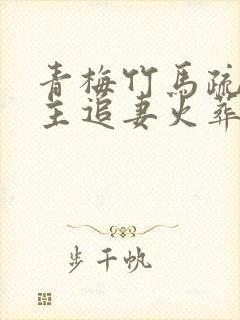 青梅竹馬疏
主追妻火葬
步千帆